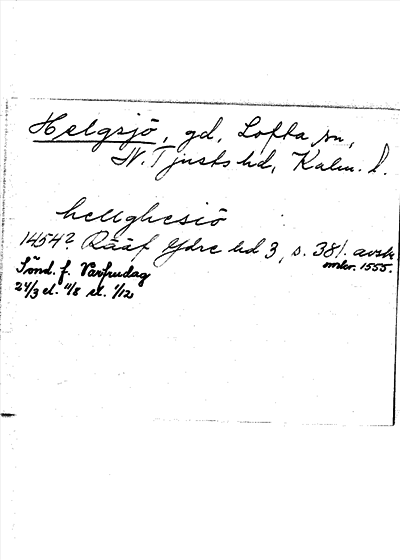 Helgsjö, gd, Lofta sn,
N. Tjusts hd, Kalm. l.
helighesiö
1454? Rääf Ydre hd 3, s. 381. avskr
omkr. 1555.
Sönd. f. Vårfrudag
24/3 el. 11/8 el. 1/12